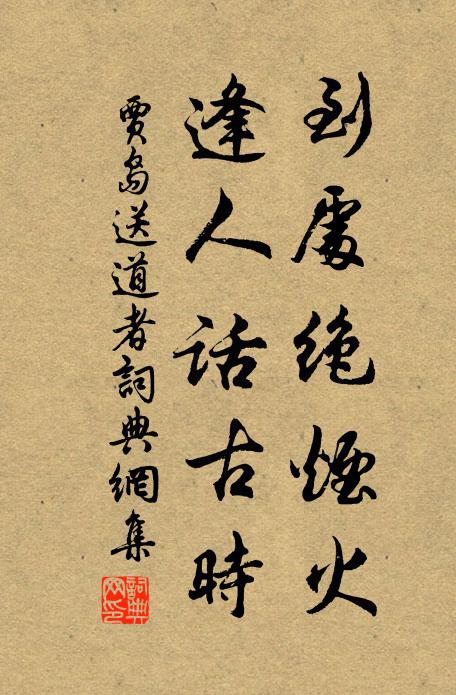 到處絕煙火
逢人話古時
賈島送道者詞典網集
詞典網印